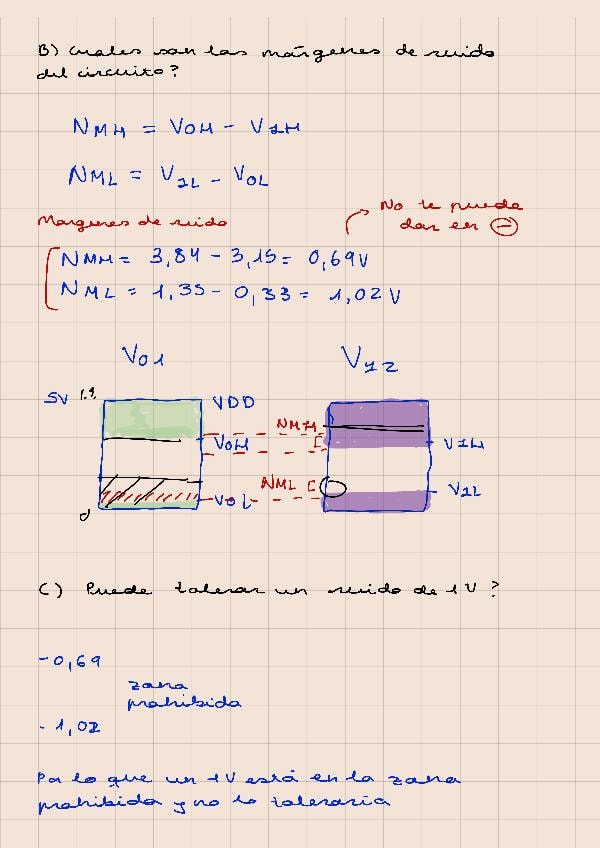 B) Cuales son los márgenes de ruido
del circuito?
NMH = VOH - VIH
NML = VIL - VOL
Margenes de ruido
No te puede
dar en -
NMH = 3,84 - 3,15 = 0,69V
NML = 1,35 - 0,33 = 1,02V
VO1
VI2
5V
VDD
NMH
VOH
VIH
NML
VOL
VIL
C) Puede tolerar un ruido de 1V?
-0,69
zona
prohibida
-1,02
Por lo que un 1V está en la zona
prohibida y no lo toleraría